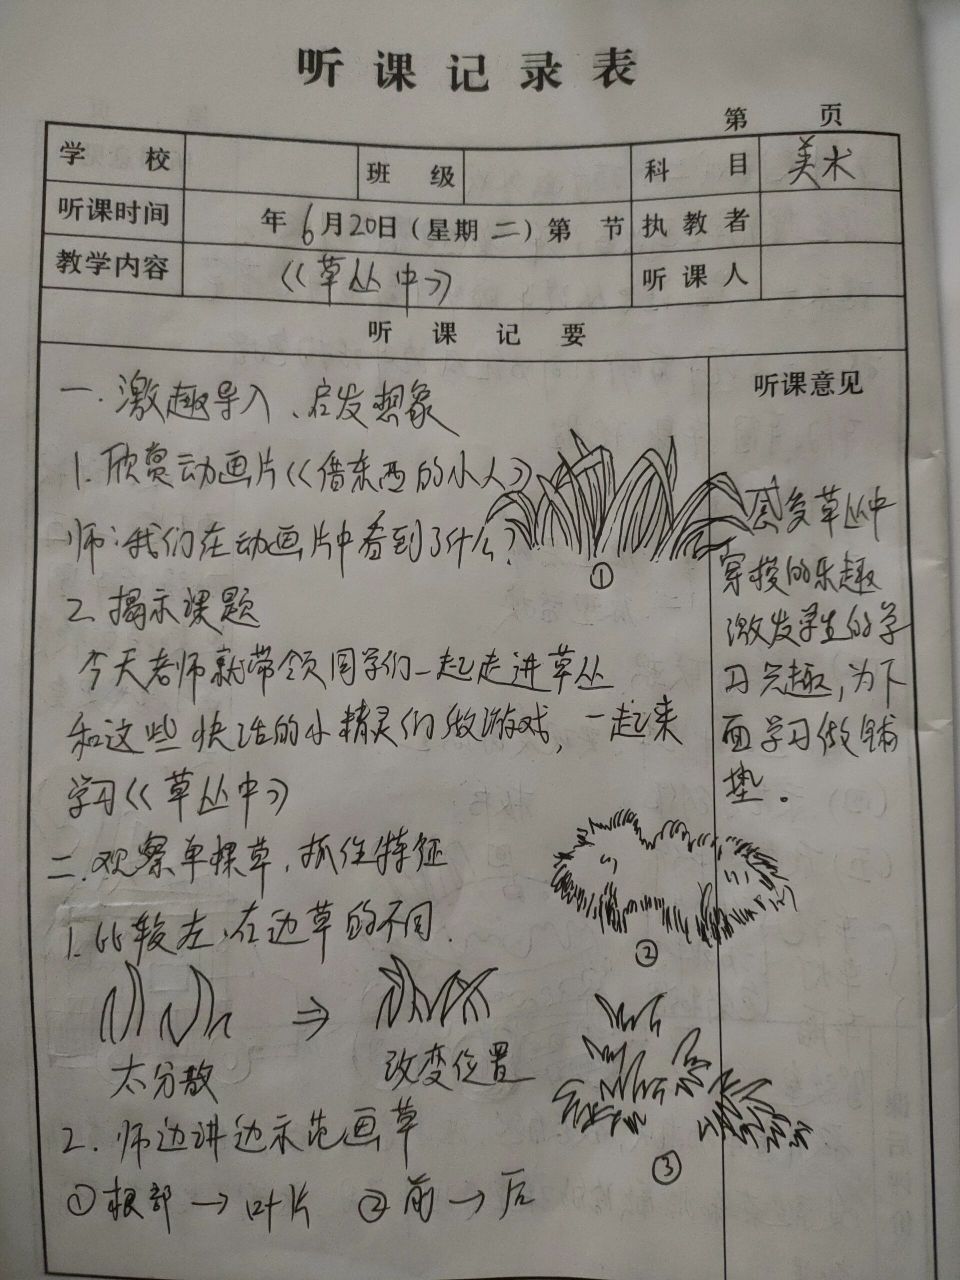 听课记录表
第 页
学校 班级 科目 美术
听课时间 年6月20日（星期二）第 节 执教者
教学内容 《草丛中》 听课人
听课记要
听课意见
一.激趣导入、启发想象
1.欣赏动画片《借东西的小人》
师:我们在动画片中看到了什么?
①
2.揭示课题
今天老师就带领同学们一起走进草丛
和这些快活的小精灵们做游戏,一起来
学习《草丛中》
二.观察单棵草,抓住特征
1.比较左、右边草的不同.
②
⇒
太分散 改变位置
2.师边讲边示范画草
③
①根部→叶片 ②前→后
感受草丛中
穿梭的乐趣
激发学生的学
习兴趣,为下
面学习做铺
垫。